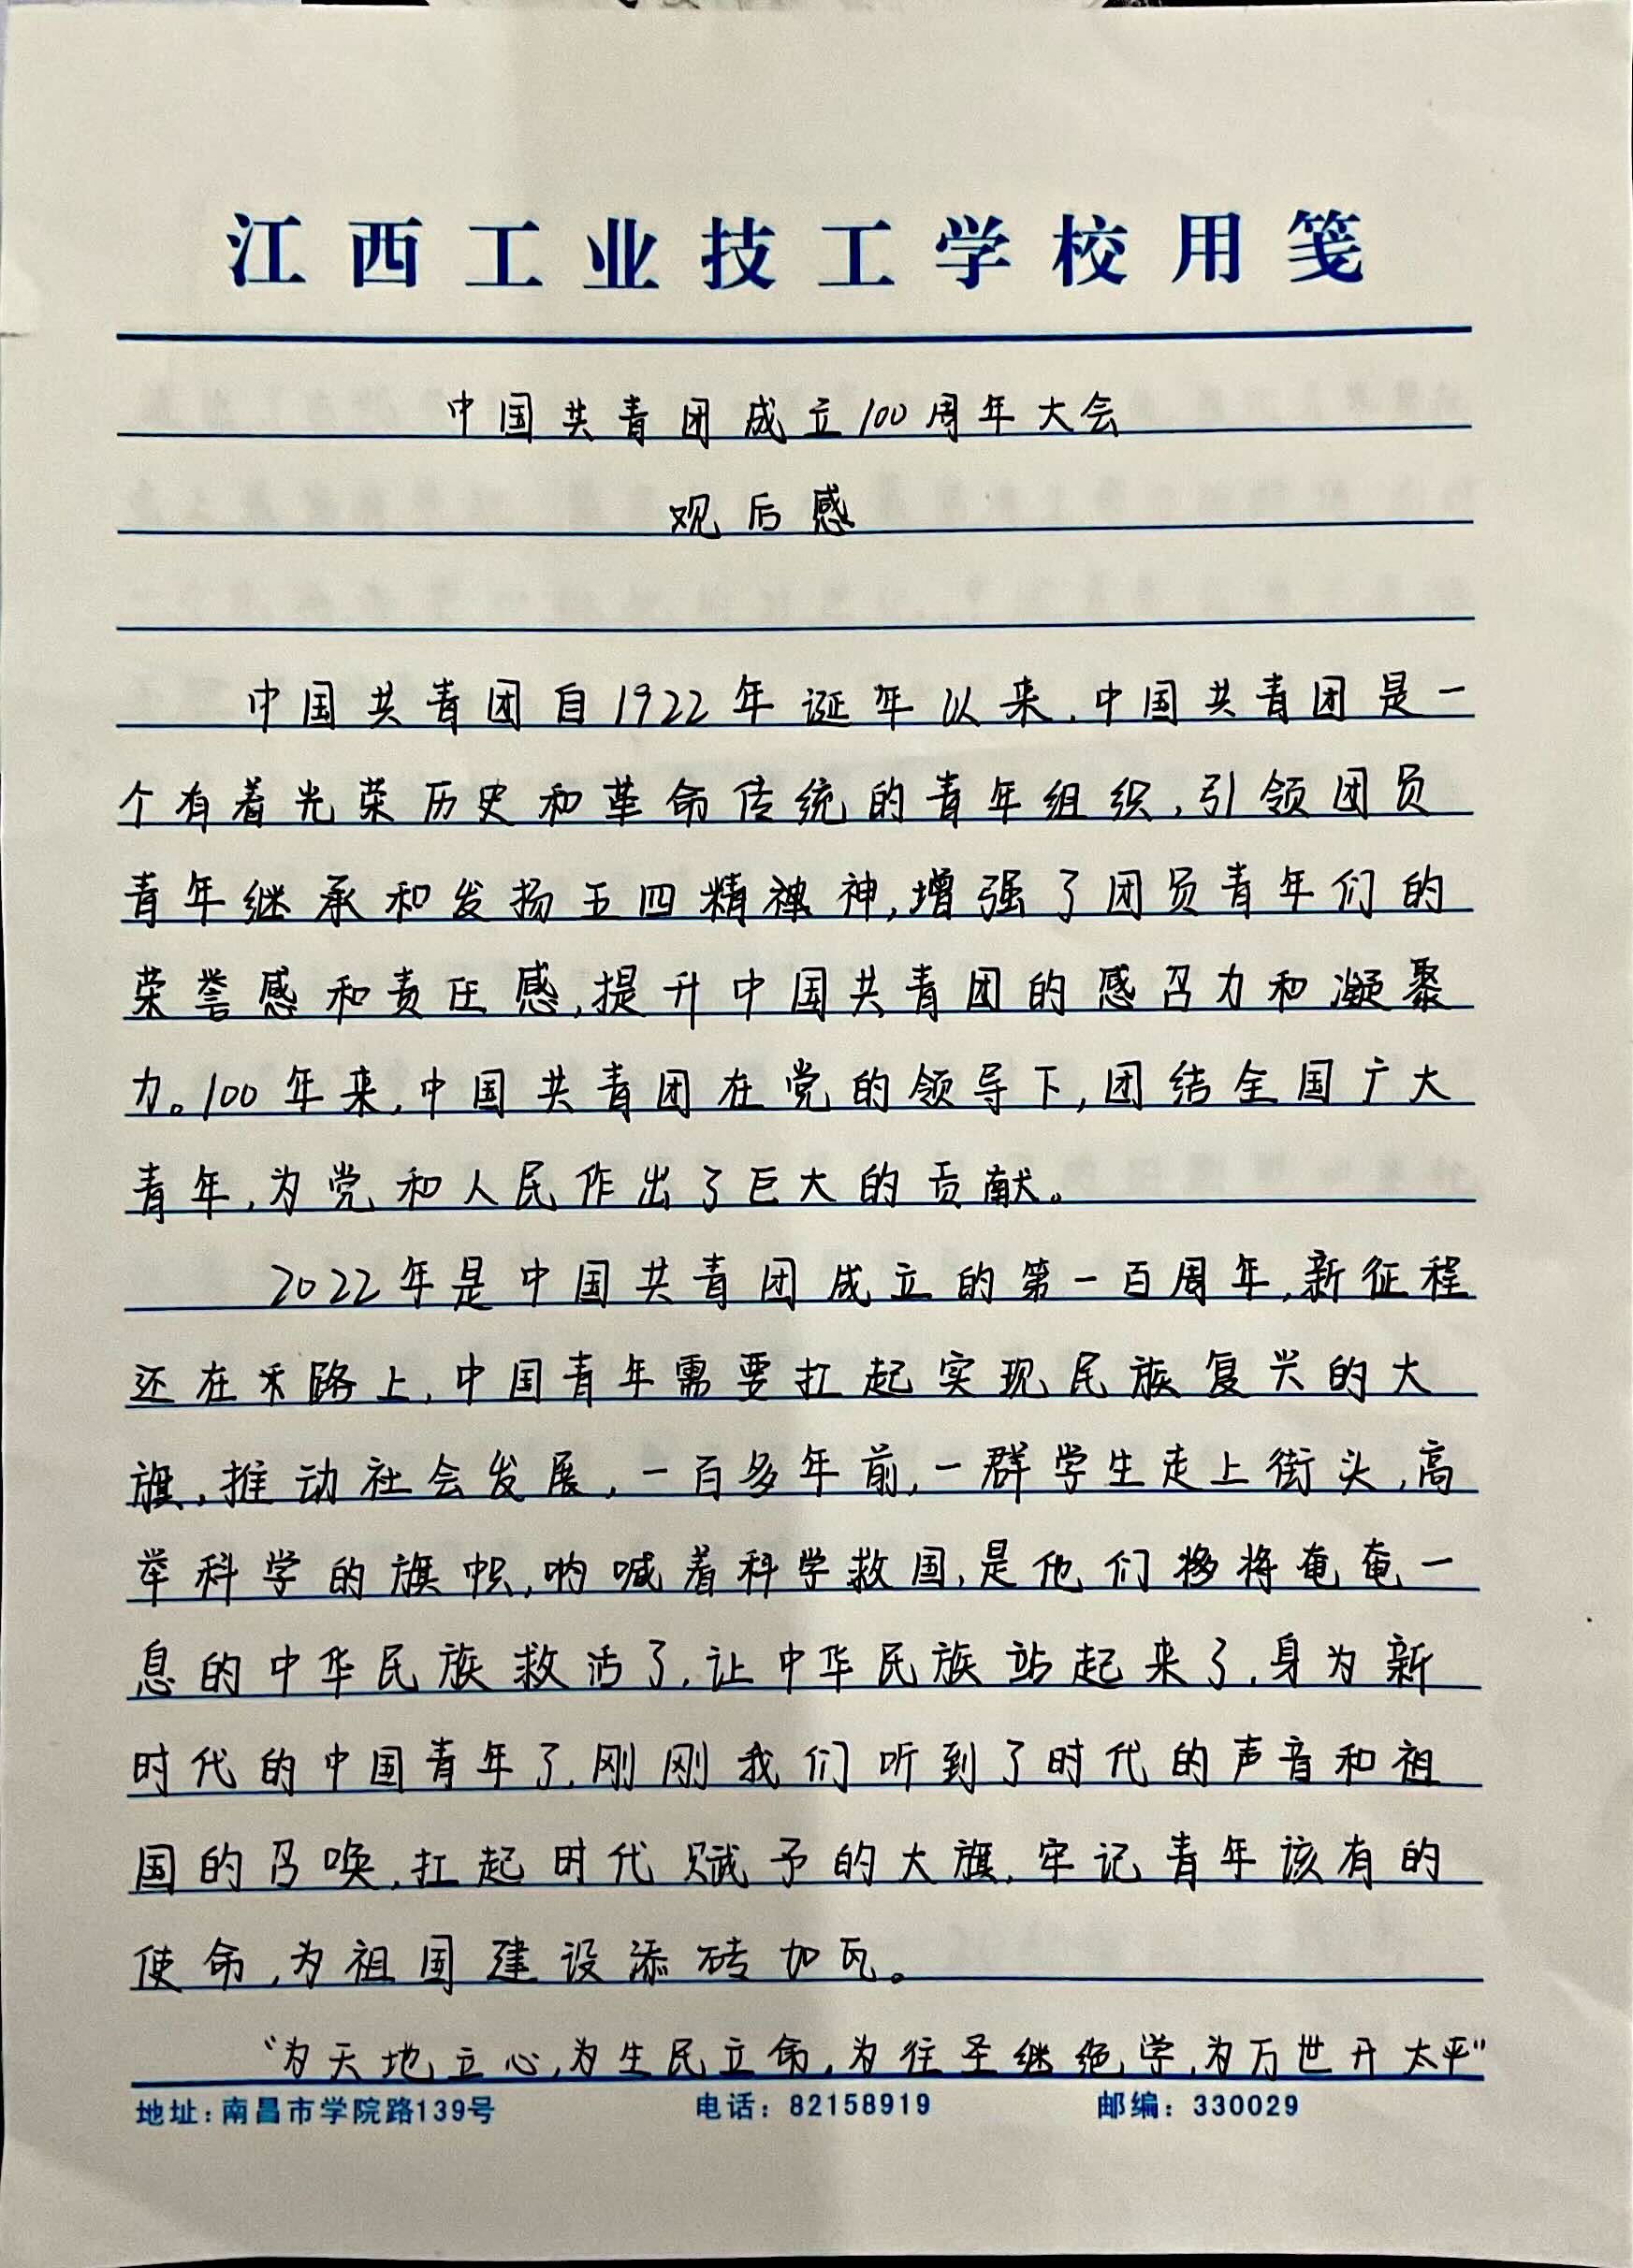 江西工业技工学校用笺
中国共青团成立100周年大会
观后感
中国共青团自1922年诞年以来，中国共青团是一
个有着光荣历史和革命传统的青年组织，引领团员
青年继承和发扬五四精神，增强了团员青年们的
荣誉感和责任感，提升中国共青团的感召力和凝聚
力。100年来，中国共青团在党的领导下，团结全国广大
青年，为党和人民作出了巨大的贡献。
2022年是中国共青团成立的第一百周年，新征程
还在路上，中国青年需要扛起实现民族复兴的大
旗，推动社会发展，一百多年前，一群学生走上街头，高
举科学的旗帜，呐喊着科学救国，是他们将奄奄一
息的中华民族救活了，让中华民族站起来了，身为新
时代的中国青年了，刚刚我们听到了时代的声音和祖
国的召唤，扛起时代赋予的大旗，牢记青年该有的
使命，为祖国建设添砖加瓦。
“为天地立心，为生民立命，为往圣继绝学，为万世开太平”
地址：南昌市学院路139号 电话：82158919 邮编：330029